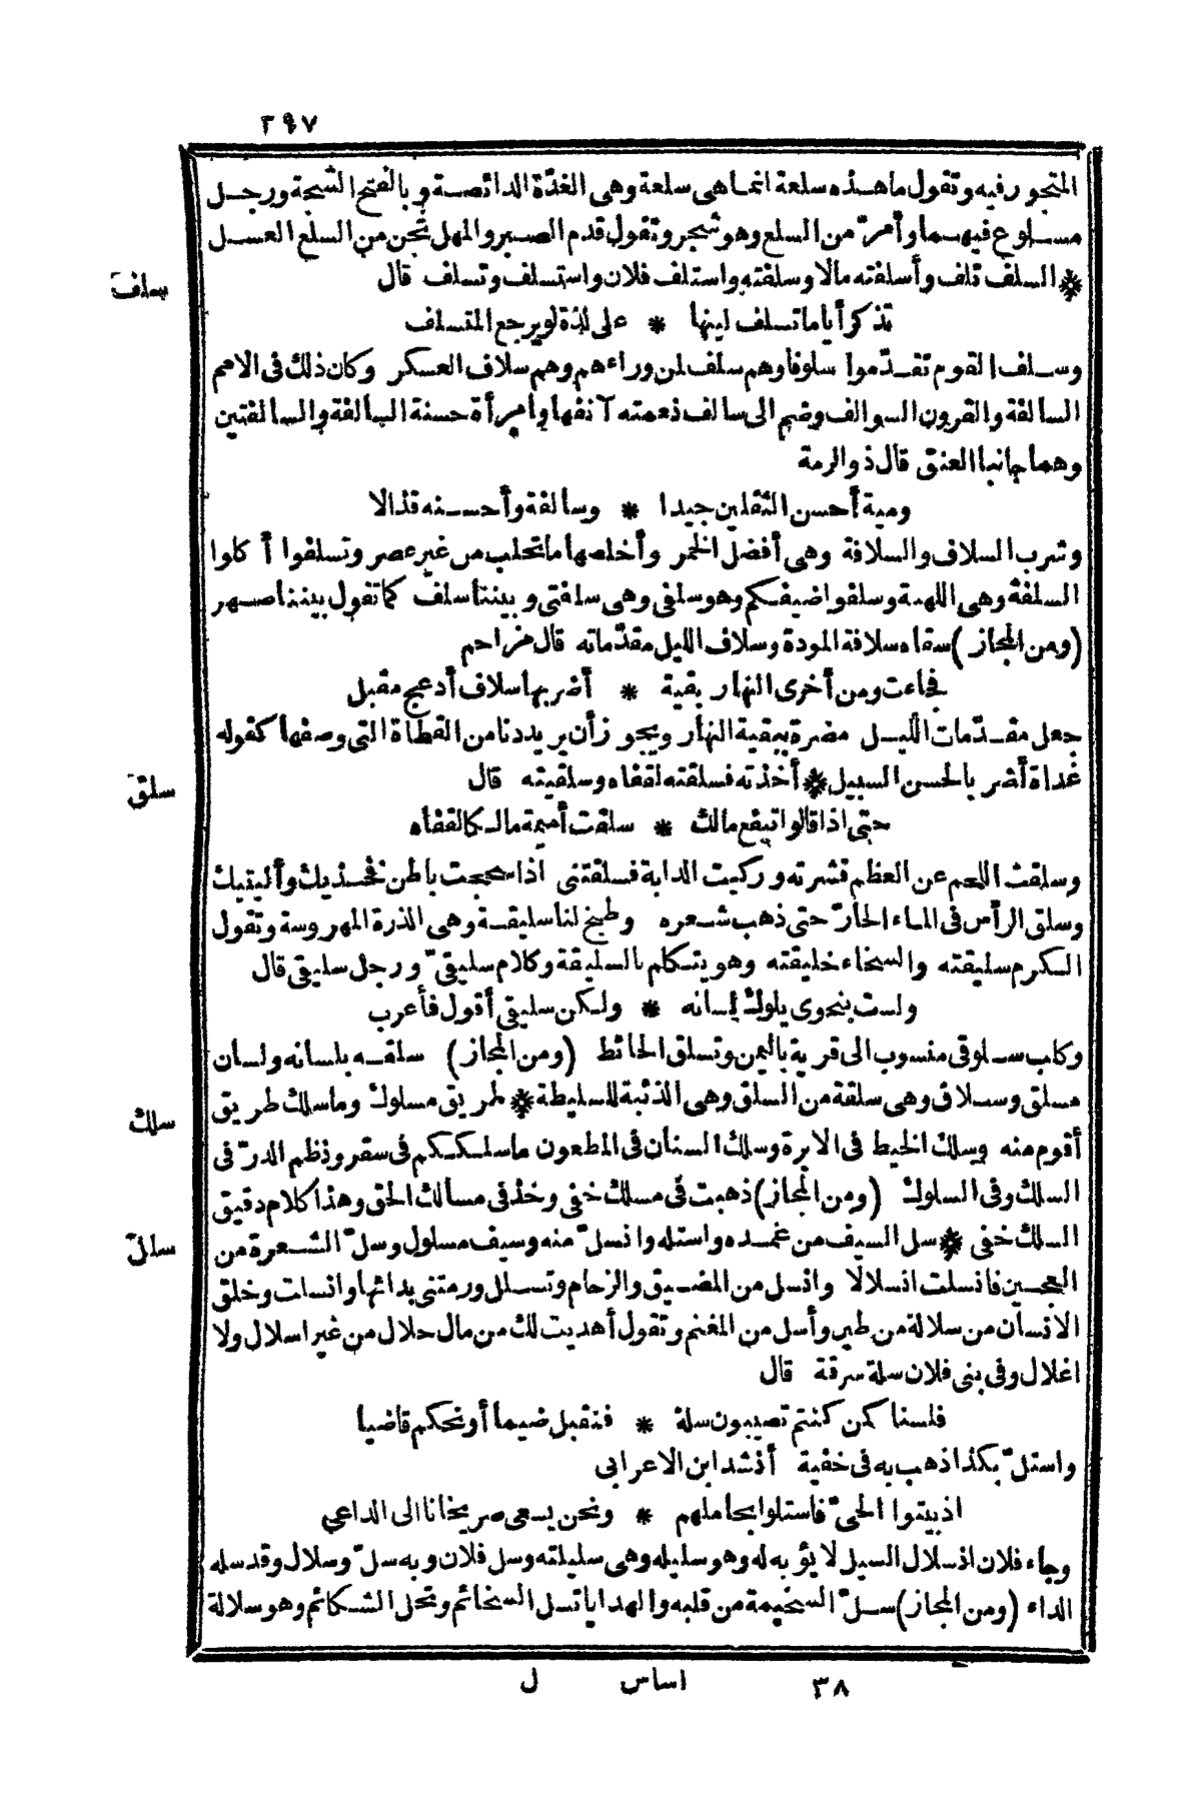 ٢٩٧
المتجور فيه وتقول ما هذه سلعة انما هى سلعة وهى الغدّة الدائصة وبالفتح الشجة ورجل
مسلوع فيهما وأمرّ من السلع وهو شجر وتقول قدم الصبر والمهل تجن من السلع العسل
سلف
* السلف تلف وأسلفته مالا وسلفته واستلف فلان واستسلف وتسلف قال
تذكر أياما تسلف لينها * على لذة لو يرجع المتسلف
وسلف القوم تقدّموا سلوفا وهم سلف لمن وراءهم وهم سلاف العسكر وكان ذلك فى الامم
السالفة والقرون السوالف وضم الى سالف نعمته آنفها وامرأة حسنة السالفة والسالفتين
وهما جانبا العنق قال ذو الرمة
ومية أحسن الثقلين جيدا * وسالفة وأحسنه قذالا
وشرب السلاف والسلافة وهى أفضل الخمر وأخلصها ما تحلب من غير عصر وتسلفوا أكلوا
السلفة وهى اللهنة وسلفوا ضيفكم وهو سلفى وهى سلفتى وبيننا سلف كما تقول بيننا صهر
(ومن المجاز) سقاه سلافة المودة وسلاف الليل مقدّماته قال مزاحم
فجاءت ومن أخرى النهار بقية * أضر بها سلاف أدعج مقبل
جعل مقدّمات الليل مضرة ببقية النهار ويجوز أن يريد دنا من القطاة التى وصفها كقوله
سلق
غداة أضر بالحسن السبيل * أخذته فسلقته لقفاه وسلقيته قال
حتى اذا قالوا تيفع مالك * سلقت أميمة مالكا لقفاه
وسلقت اللحم عن العظم قشرته وركبت الدابة فسلقتنى اذا سحجت باطن فخذيك وأليتيك
وسلق الرأس فى الماء الحارّ حتى ذهب شعره وطبخ لنا سليقة وهى الذرة المهروسة وتقول
الكرم سليقته والسخاء خليقته وهو يتكلم بالسليقة وكلام سليقىّ ورجل سليقى قال
ولست بنحوى يلوك لسانه * ولكن سليقى أقول فأعرب
وكلب سلوقى منسوب الى قرية باليمن وتسلق الحائط (ومن المجاز) سلقه بلسانه ولسان
سلك
مسلق وسلاق وهى سلقة من السلق وهى الذئبة للسليطة * طريق مسلوك وما سلك طريق
أقوم منه وسلك الخيط فى الابرة وسلك السنان فى المطعون ما سلككم فى سقر ونظم الدرّ فى
السلك وفى السلوك (ومن المجاز) ذهبت فى مسلك خفى وخذ فى مسالك الحق وهذا كلام دقيق
سلل
السلك خفى * سل السيف من غمده واستله وانسلّ منه وسيف مسلول وسلّ الشعرة من
العجين فانسلت انسلالا وانسل من المضيق والزحام وتسلل ورمتنى بدائها وانسلت وخلق
الانسان من سلالة من طين وأسل من المغنم وتقول أهديت لك من مال حلال من غير اسلال ولا
اغلال وفى بنى فلان سلة سرقة قال
فلسنا كمن كنتم تصيبون سلة * فنقبل ضيما أو نحكم قاضيا
واستلّ بكذا ذهب به فى خفية أنشد ابن الاعرابى
اذ بيتوا الحىّ فاستلوا بجاملهم * ونحن يسعى صريخانا الى الداعى
وجاء فلان انسلال السيل لا يؤبه له وهو سليله وهى سليلته وسل فلان وبه سلّ وسلال وقد سله
الداء (ومن المجاز) سلّ السخيمة من قلبه والهدايا تسل السخائم وتحل الشكائم وهو سلالة
٣٨ اساس ل